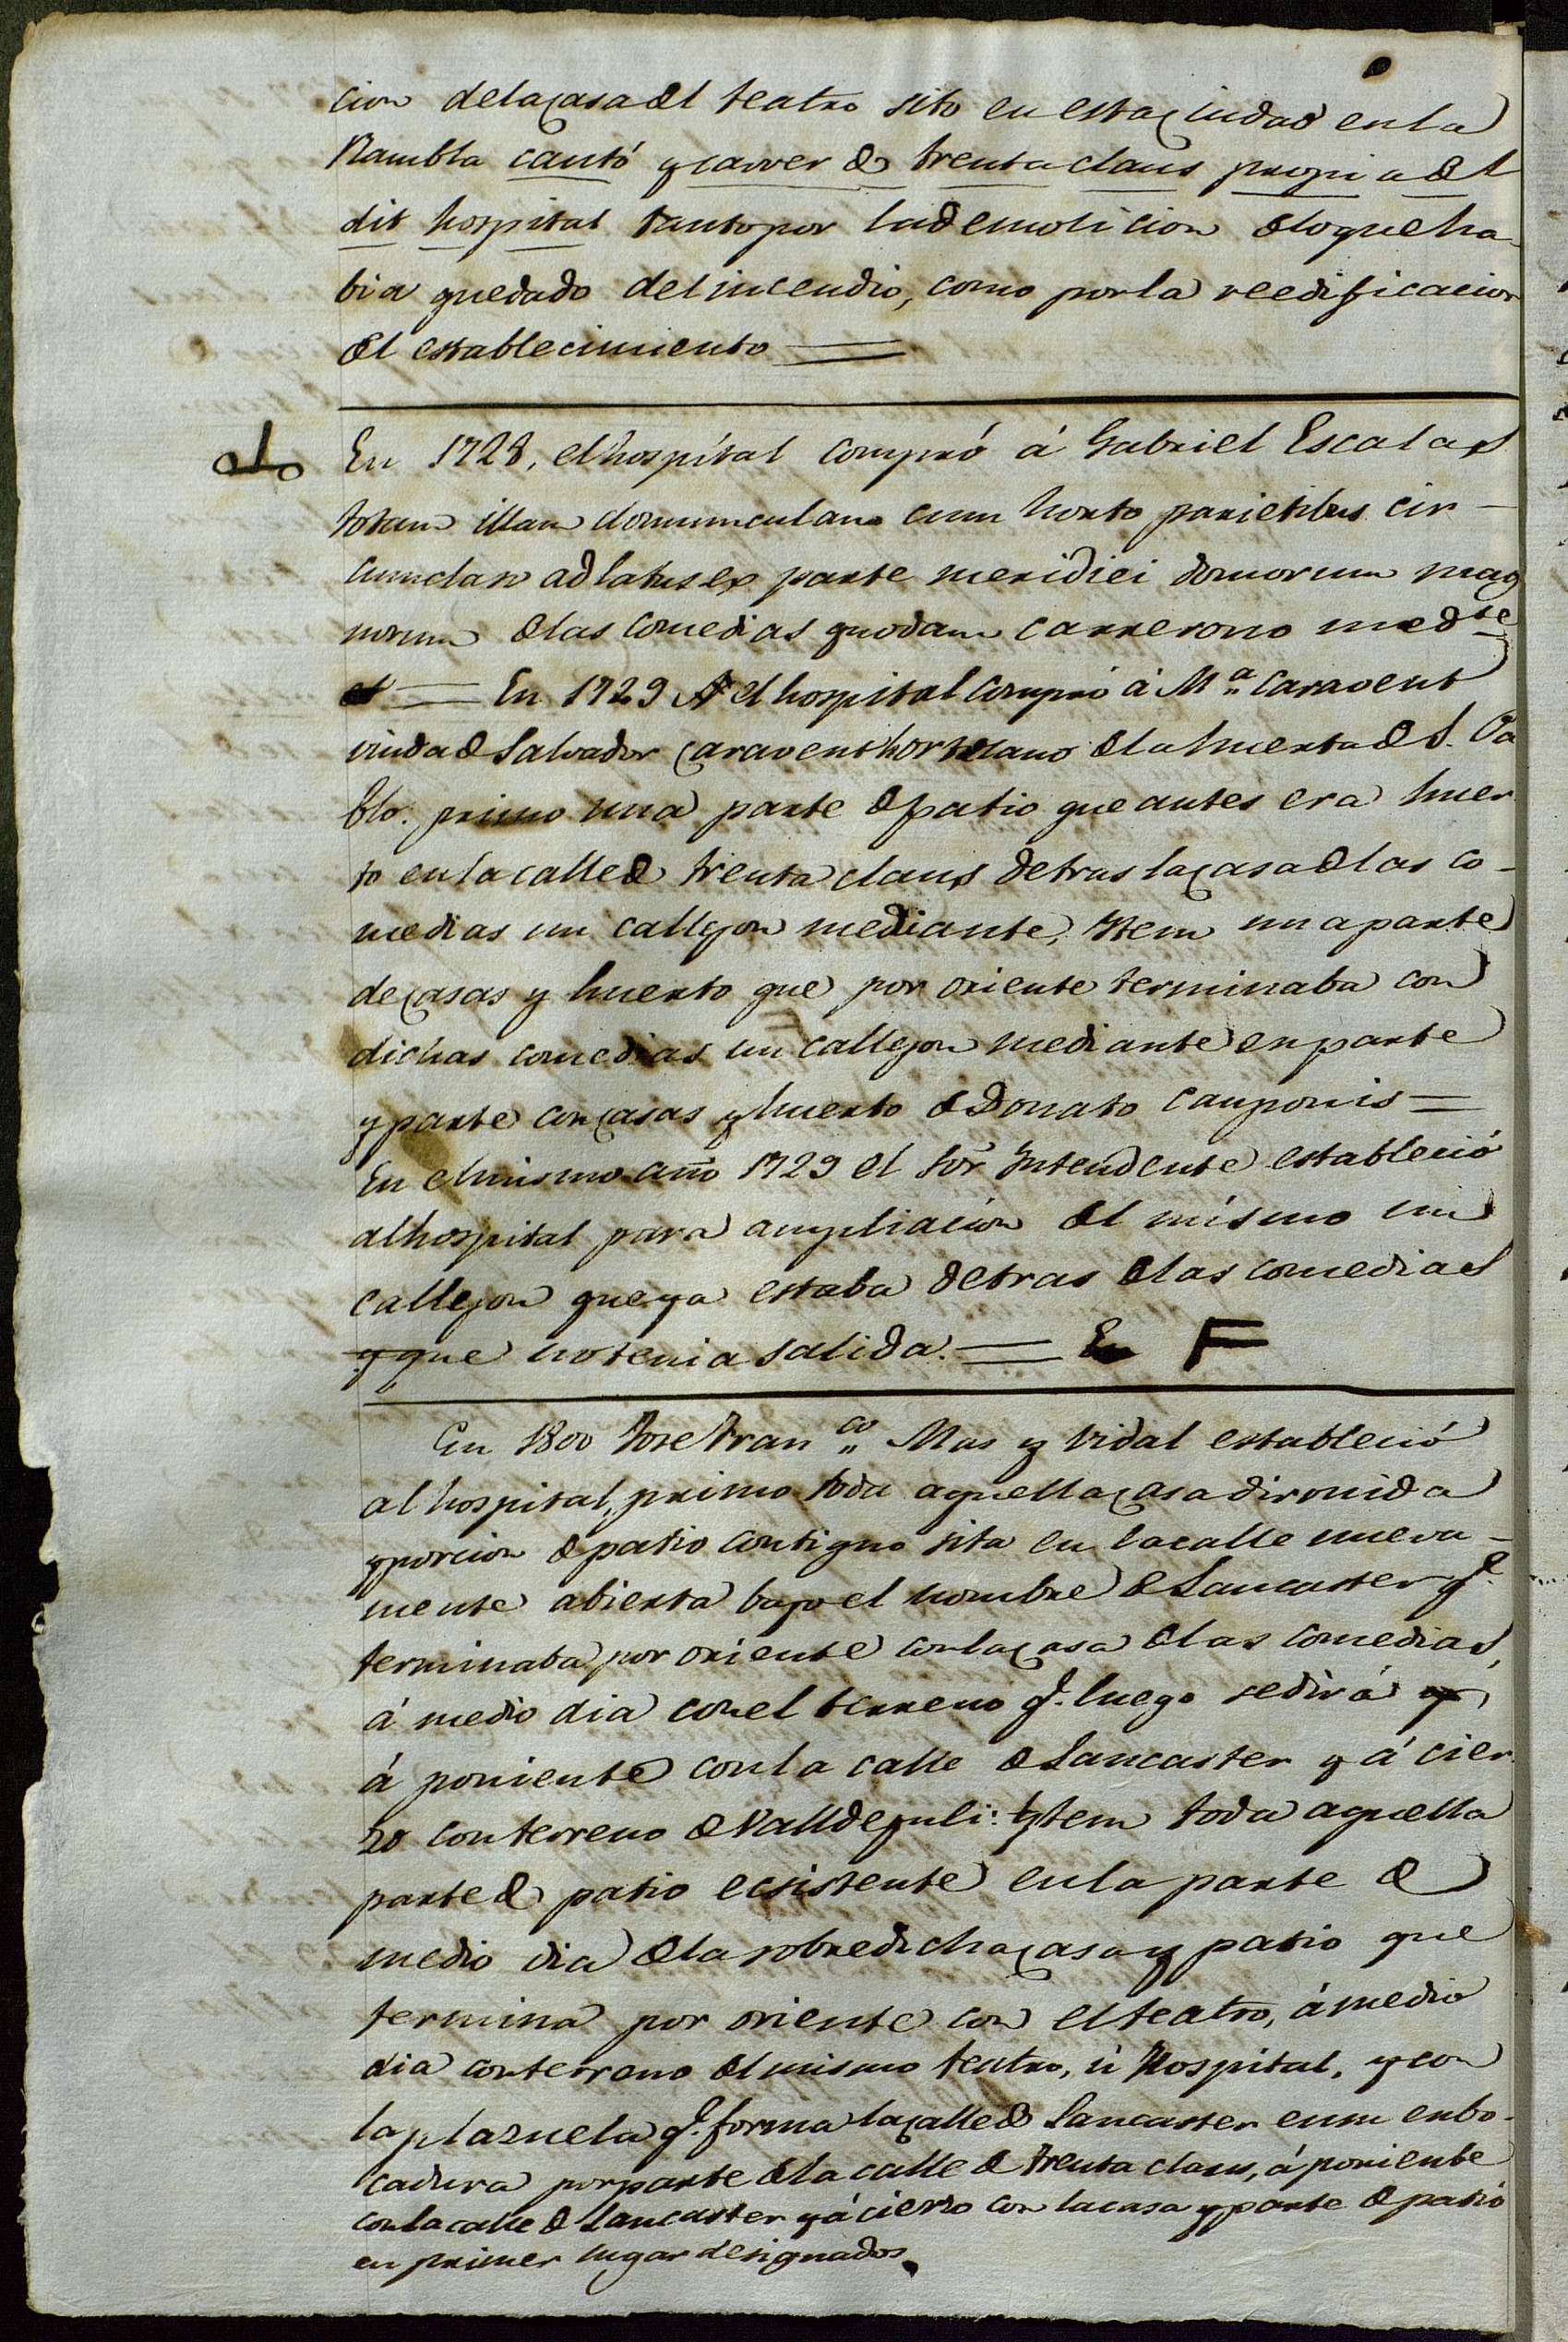 cion de la casa del teatro sito en esta ciudad en la
Rambla cantó y carrer de trentaclaus propia del
dit hospital tanto por la demolicion de lo que ha-
bia quedado del incendio, como por la reedificacion
del establecimiento =
En 1728, el hospital compró á Gabriel Escalas
totam illam domumculam cum horto parietibus cir-
cumclaso ad latus ex parte meridiei domorum mag
norum de las comedias quodam carrerono medte
= En 1729 el hospital compró á Ma Caravent
viuda de Salvador Caravent hortelano de la huerta de S. Pa
blo. primo una parte de patio que antes era huer
to en la calle de trenta claus detras la casa de las co-
medias un callejon mediante, Item una parte
de casas y huerto que por oriente terminaba con
dichas comedias un callejon mediante en parte
y parte con casas y huerto de Donato Cauponis =
En el mismo año 1729 el Sor Intendente estableció
al hospital para ampliacion del mismo un
callejon que ya estaba detras de las comedias
y que no tenia salida. = F
En 1800 Jose Franco Mas y Vidal estableció
al hospital, primo toda aquella casa dirruida
y porcion de patio contiguo sita en la calle nueva-
mente abierta bajo el nombre de Lancaster qe
terminaba por oriente con la casa de las comedias,
á medio dia con el terreno q. luego se dirá
á poniente con la calle de Lancaster y á cier
zo con terreno de Valldejuli: Ytem toda aquella
parte de patio ecsistente en la parte de
medio dia de la sobredicha casa y patio que
termina por oriente con el teatro, á medio
dia con terreno del mismo teatro, ú Hospital, y con
la plazuela q. forma la calle de Lancaster en su enbo-
cadura por parte de la calle de trenta claus, á poniente
con la calle de Lancaster y á cierzo con la casa y parte de patio
en primer lugar designados.